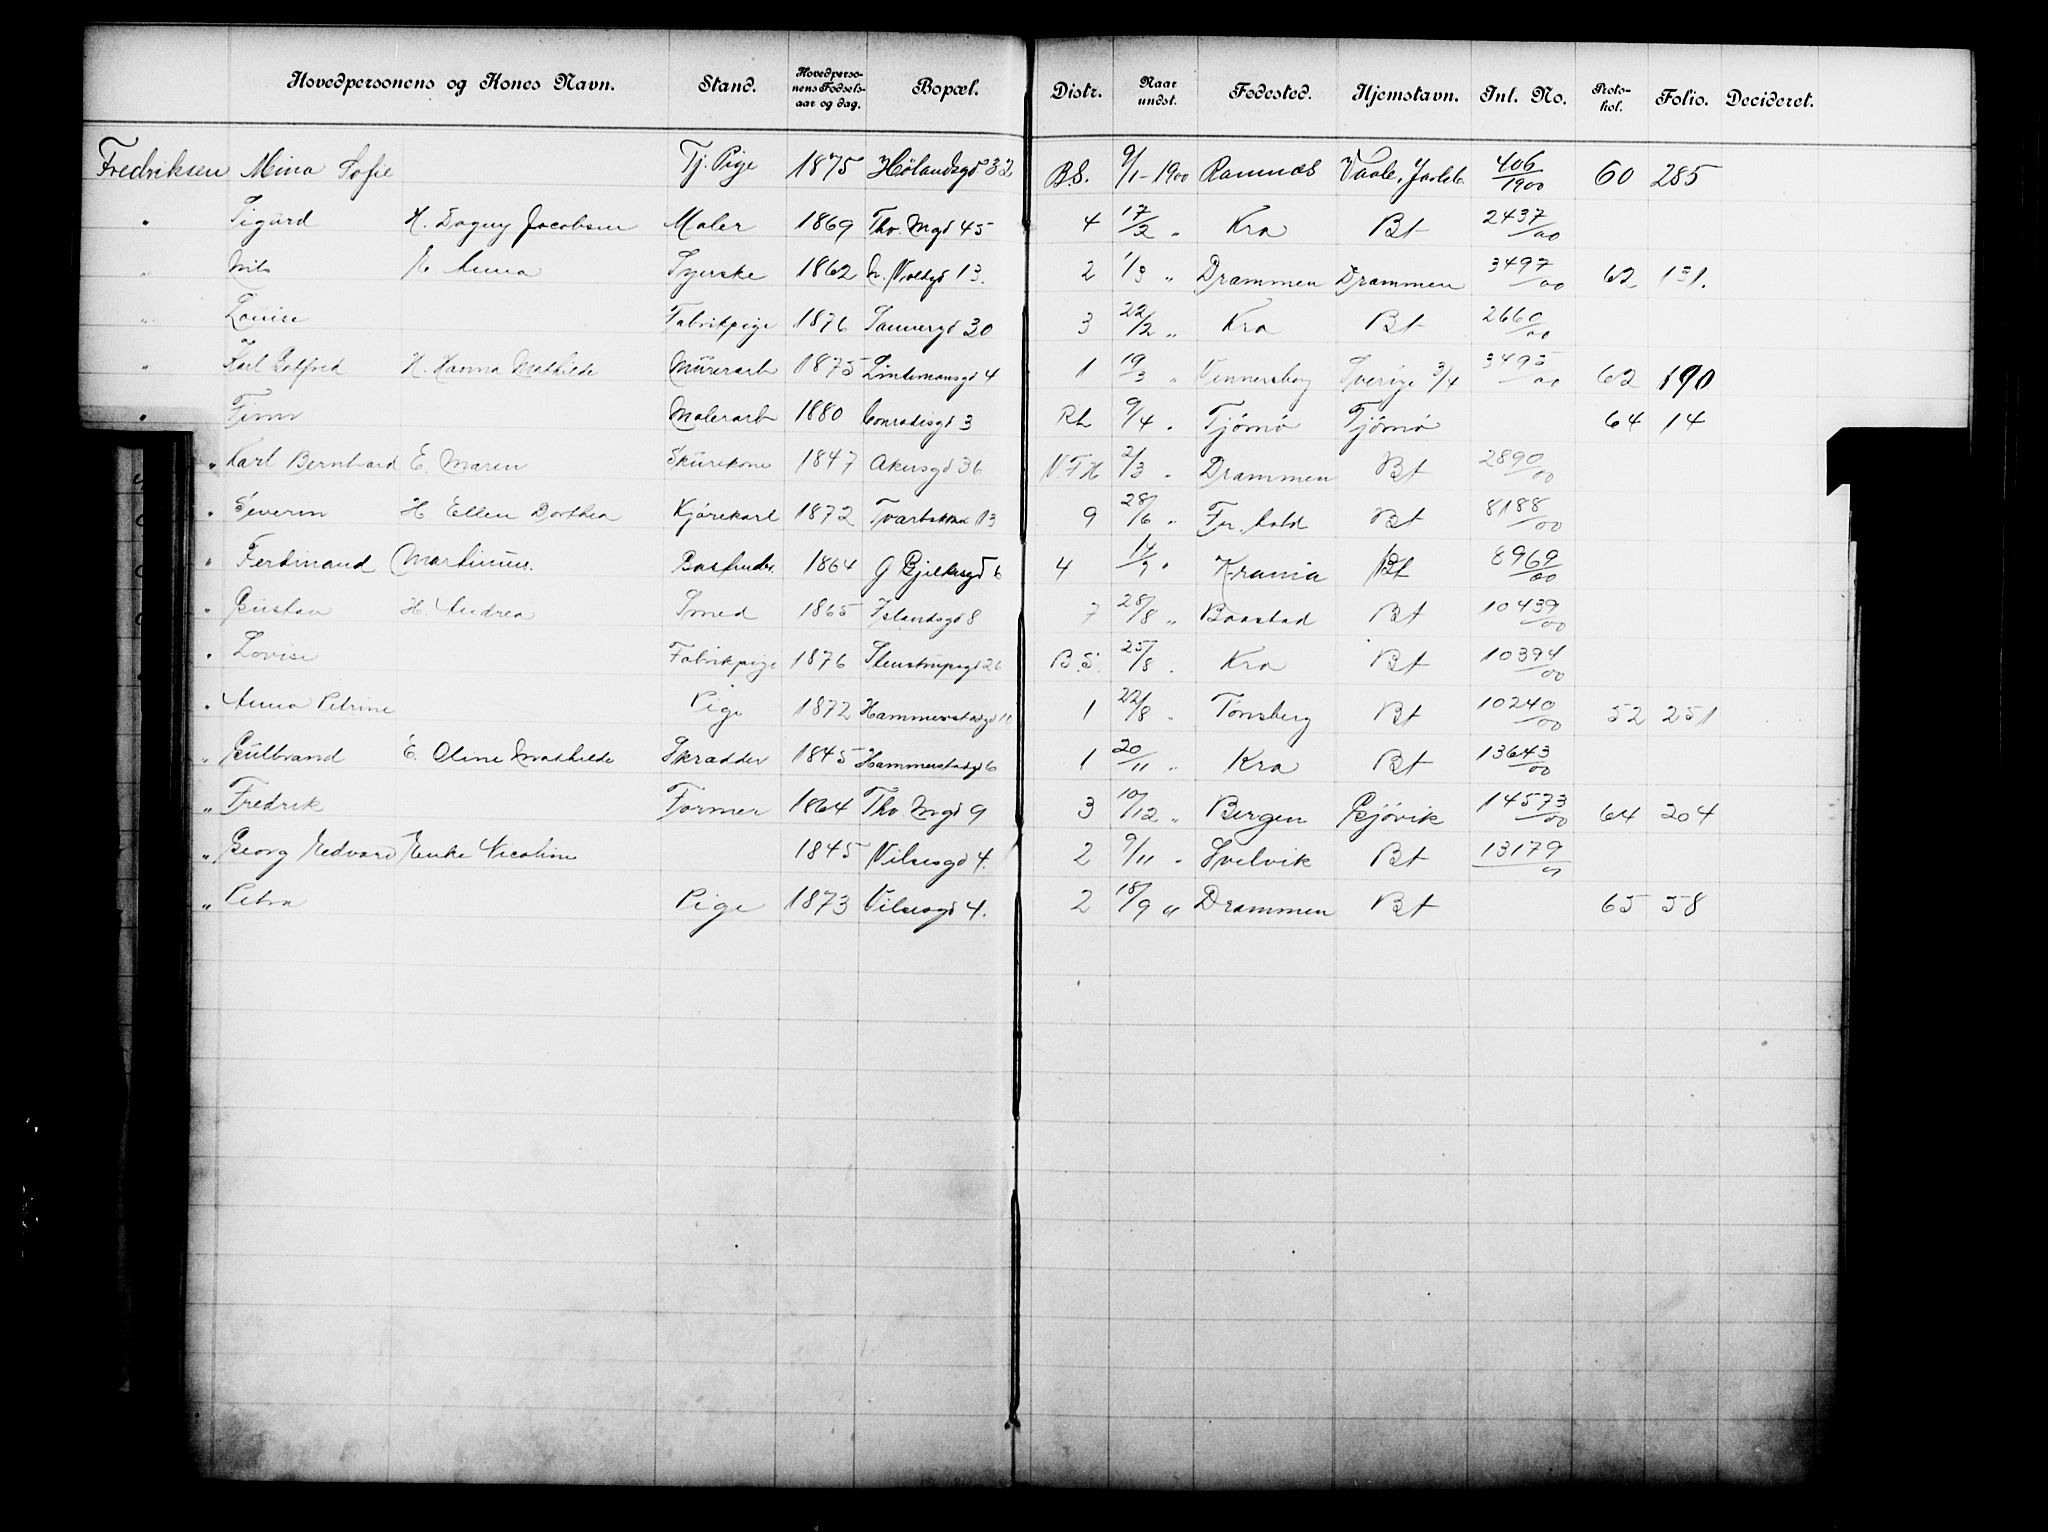 Hovedpersonens og Kones Navn. Stand. Hovedpersonens Fødsels-aar og dag. Bopæl. Distr. Naar undst. Fødested. Hjemstavn. Int. No. Protokol. Folio. Decideret.
Fredriksen Mina Sofie Tj. Pige 1875 Hølandsgd 32 B.S. 9/1-1900 Ramnæs Vaale, Jarlsb. 406/1900 60 285
" Sigurd H. Dagny Jacobsen Maler 1869 Thv. Mgd 45 4 17/2 " Kra Bt 2437/00
" Nils H. Anna Syerske 1862 N. Voldgd 13. 2 1/3 " Drammen Drammen 3497/00 62 131.
" Louise Fabrikpige 1876 Sannergd 30 3 22/2 " Kra Bt 2660/00
" Karl Gotfred H. Hanna Mathilde Murerarb 1875 Lindemansgd 4 1 19/3 " Vennersborg Sverige 3/4 3495/00 62 190
" Finn Malerarb 1880 Conradisgd 3 Rh 9/4 " Tjømø Tjømø 64 14
" Karl Bernhard E. Maren Skurekone 1847 Akersgd 36 V.F.H 2/3 " Drammen Bt 2890/00
" Severin H Ellen Dorthea Kjørekarl 1872 Tvarbakken 13 9 28/6 " Fr. hald Bt 8188/00
" Ferdinand Martinius. 1864 G Bjelkesgd 6 4 17/7 " Krania Bt 8969/00
" Gustav H. Andrea Smed 1865 Islandsgd 8 7 28/8 " Baastad Bt 10439/00
" Lovise Fabrikpige 1876 Stenstrupsgd 26 B.S. 25/8 " Kra Bt 10394/00
" Anna Petrine Pige 1872 Hammerstadgd 11 1 22/8 " Tønsberg Bt 10240/00 52 251
" Gulbrand E. Oline Mathilde Skrædder 1845 Hammerstadgd 6 1 20/11 " Kra Bt 13643/00
" Fredrik Former 1864 Thv. Mgd 9 3 10/12 " Bergen Gjøvik 14573/00 64 204
" Georg Edvard Enke Nicoline 1845 Vilsesgd 4. 2 9/11 " Svelvik Bt 13179/00
" Petra Pige 1873 Vilsesgd 4. 2 18/9 " Drammen Bt 65 58